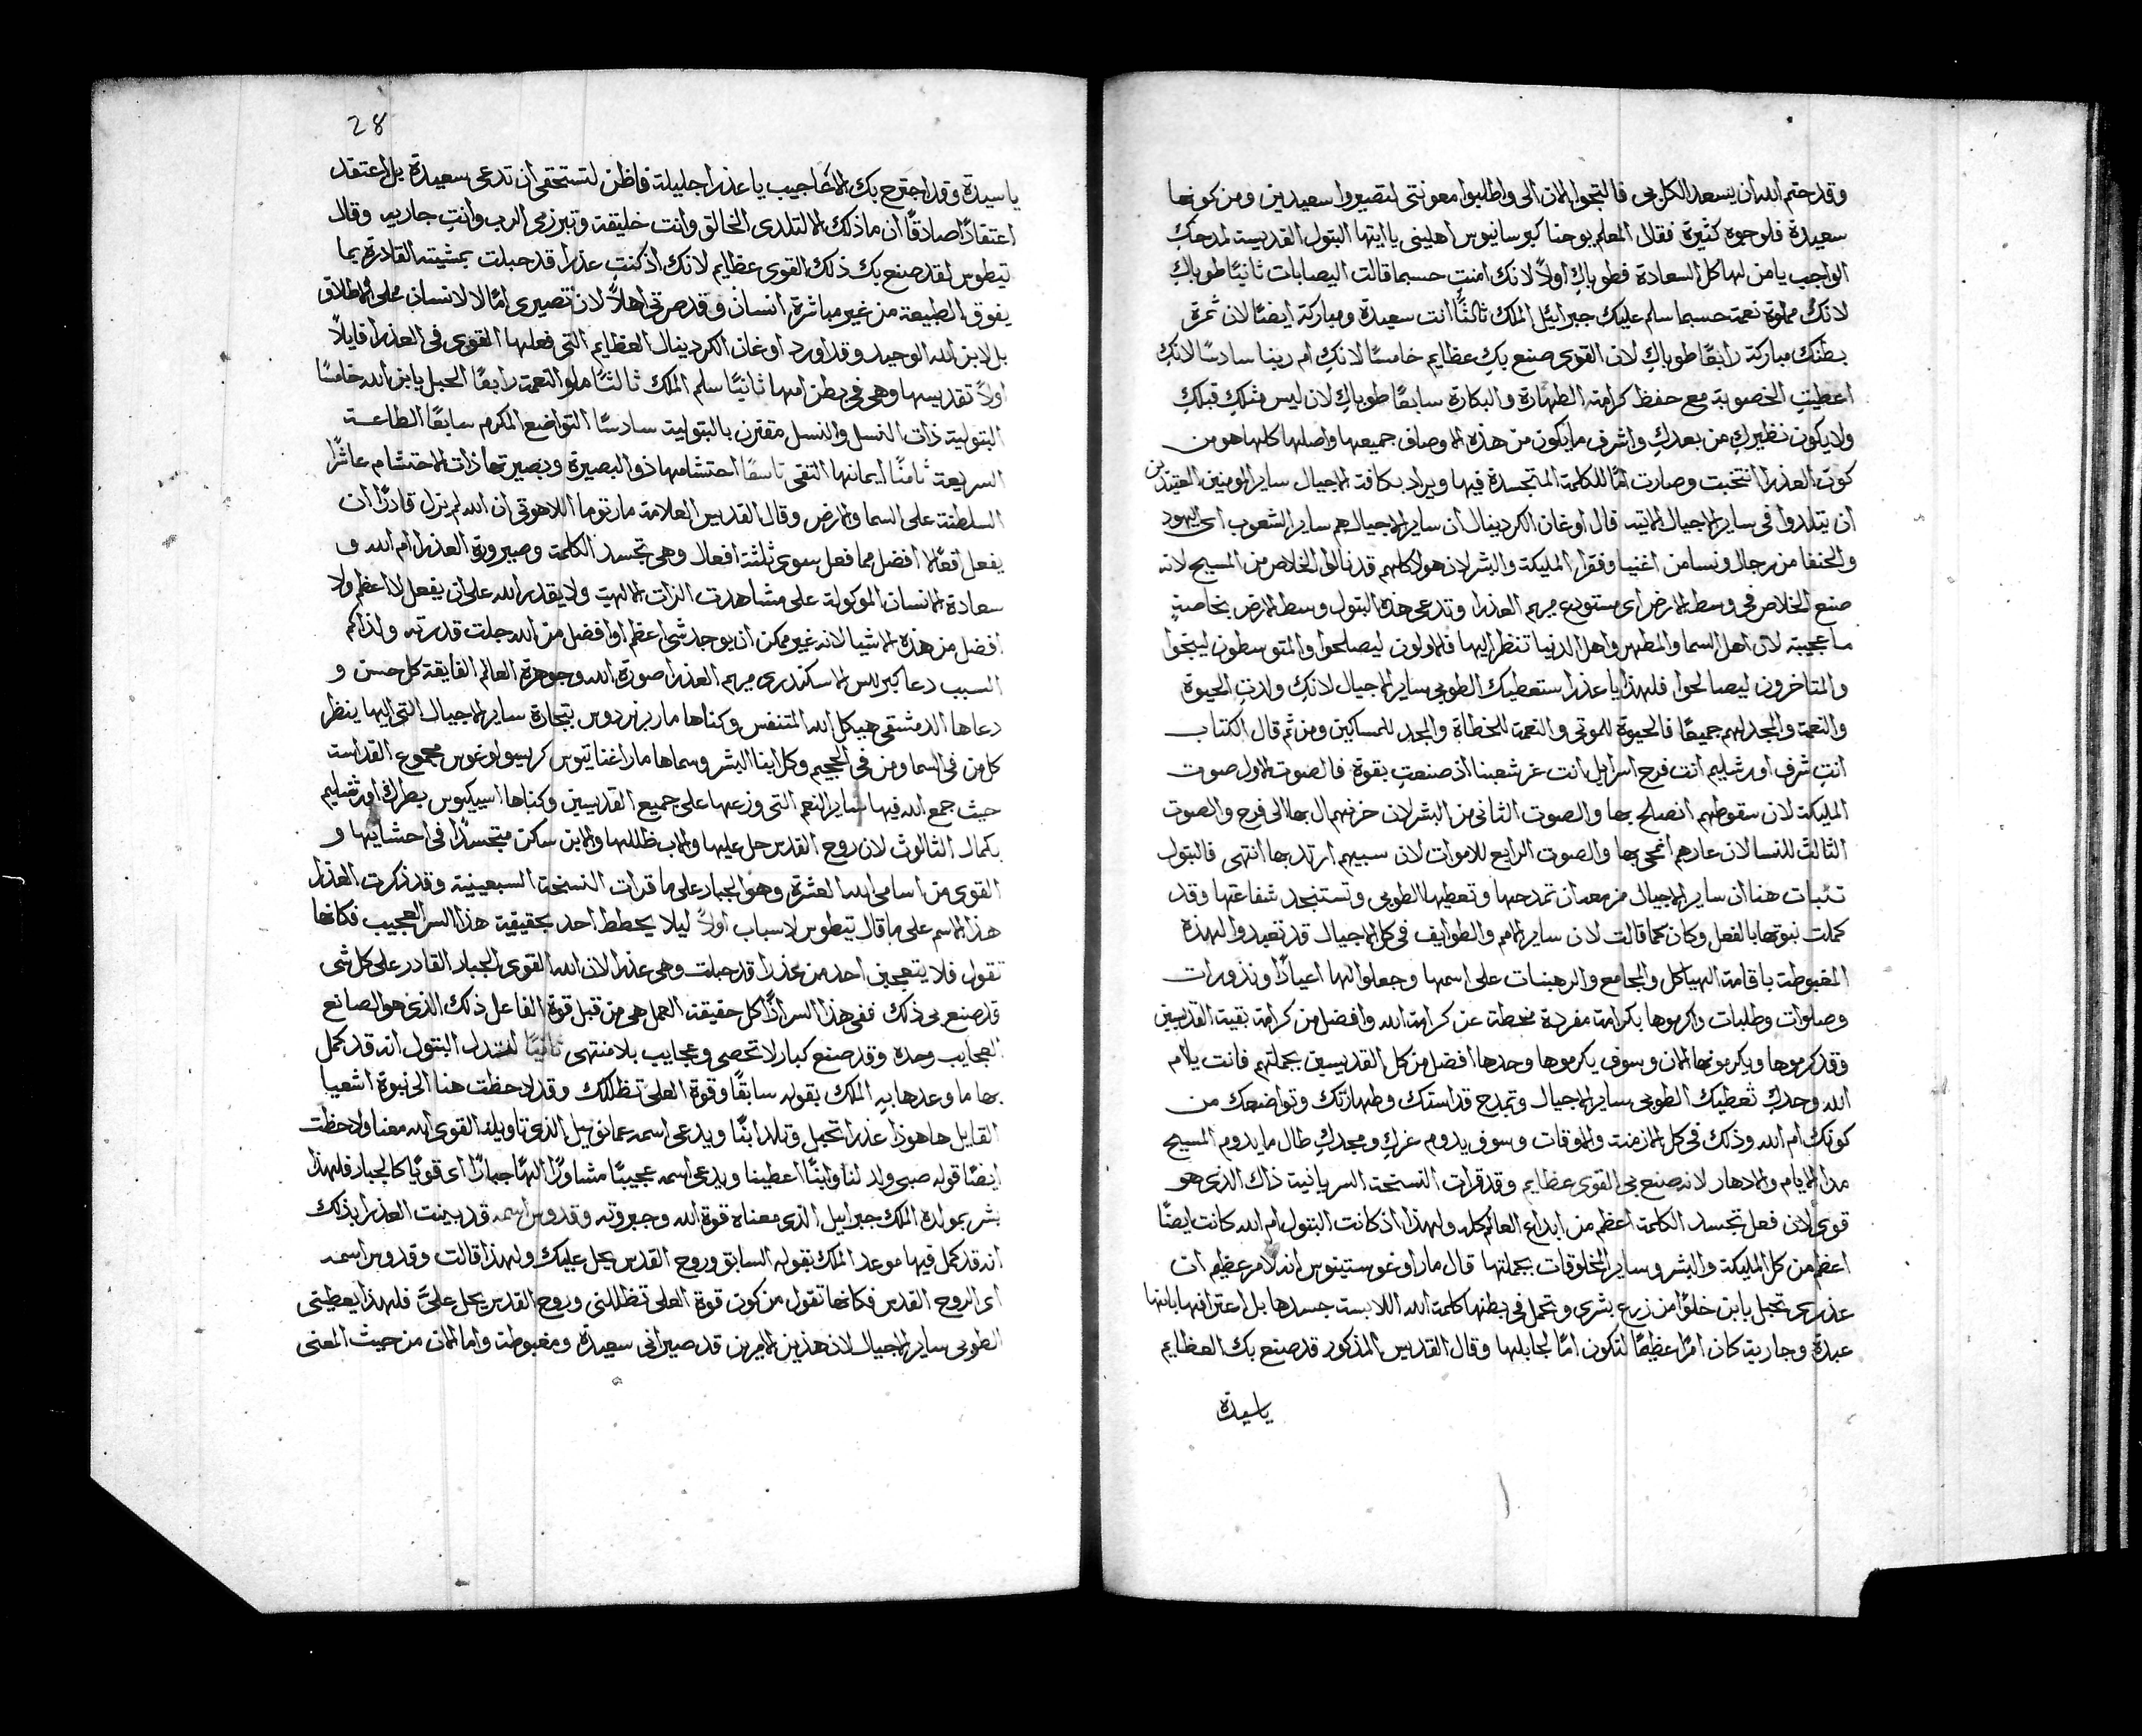 وقد حتم الله ان يسعد الكل بي فالتجوا الان الى واطلبوا معونتي لتصيروا سعيدين ومن كونها
سعيدة فلوجوه كثيرة فقال المعلم يوحنا كبرسانيوس اهليني يا ايتها البتول القديسة لمدحكِ
الواجب يا من لها كل السعادة فطوباكِ اولاً لانك امنتِ حسبما قالت اليصابات ثانيًا طوباكِ
لانكِ مملوة نعمة حسبما سلم عليكِ جبرائيل الملك ثالثًا انت سعيدة ومباركة ايضًا لان ثمرة
بطنك مباركة رابعًا طوباكِ لان القوي صنع بكِ عظايم خامسًا لانكِ ام ربنا سادسًا لانكِ
اعطيتِ الخصوبة مع حفظ كرامة الطهارة والبكارة سابعًا طوباكِ لان ليس مثلكِ قبلكِ
ولا يكون نظيركِ من بعدكِ واشرف ما يكون من هذه الاوصاف جميعها واصلها كلها هو من
كون العذرا انتخبت وصارت امًا للكلمة المتجسدة فيها ويراد بكافة الاجيال ساير المومنين العتيدين
ان يتلدوا في ساير الاجيال الاتية قال اوغان الكردينال ان ساير الاجيال هم ساير الشعوب اي اليهود
والحنفا من رجال ونسا من اغنيا وفقرا المليكة والبشر لان هولا كلهم قد نالوا الخلاص من المسيح لانه
صنع الخلاص في وسط الارض اي مستودع مريم العذرا وتدعى هذه البتول وسط الارض بخاصةٍ
ما عجيبة لان اهل السما والمطهر واهل الدنيا تنظر اليها فالاولون ليصلحوا والمتوسطون لينجوا
والمتاخرون ليصالحوا فلهذا يا عذرا ستعطيك الطوبى ساير الاجيال لانكِ ولدتِ الحيوة
والنعمة والمجد لهم جميعًا فالحيوة للموتى والنعمة للخطاة والمجد للمساكين ومن ثم قال الكتاب
انتِ شرف اورشليم انت فرح اسرايل انت عز شعبنا اذ صنعتِ بقوة فالصوت الاول صوت
المليكة لان سقوطهم انصلح بها والصوت الثاني من البشر لان حزنهم ال بها الى فرح والصوت
الثالث للنسا لان عارهم انمحى بها والصوت الرابع للاموات لان سبيهم ارتد بها انتهى فالبتول
تنبات هنا ان ساير الاجيال مزمعة ان تمدحها وتعطيها الطوبى وتستنجد شفاعتها وقد
كملت نبوتها بالفعل وكان كما قالت لان ساير الامم والطوايف في كل الاجيال قد تعبدوا لهذه
المغبوطة باقامة الهياكل والمجامع والرهبنات على اسمها وجعلوا لها اعيادًا ونذورات
وصلوات وطلبات واكرموها بكرامة مفردة منحطة عن كرامة الله وافضل من كرامة بقية القديسين
وقد كرموها ويكرمونها الان وسوف يكرموها وحدها افضل من كل القديسين بجملتهم فانت يا ام
الله وحدكِ تعطيك الطوبى ساير الاجيال وتمدح قداستك وطهارتك وتواضعك من
كونك ام الله وذلك في كل الازمنة والاوقات وسوف يدوم عزكِ ومجدكِ طال ما يدوم المسيح
مدا الايام والادهار لانه صنع بي القوي عظايم وقد قرات النسخة السريانية ذاك الذي هو
قوي لان فعل تجسد الكلمة اعظم من ابداع العالم كله ولهذا اذ كانت البتول ام الله كانت ايضًا
اعظم من كل المليكة والبشر وساير المخلوقات بجملتها قال مار اوغوستينوس انه لامر عظيم ان
عذرى تحبل بابن خلوًا من زرع بشري وتحمل في بطنها كلمة الله اللابست جسدها بل اعترافها بانها
عبدة وجارية كان امرًا عظيمًا لتكون امًا لجابلها وقال القديس المذكور قد صنع بك العظايم
يا سيدة
28
يا سيدة وقد اجترح بك الاعاجيب يا عذرا جليلة فاظن لتستحقي ان تدعى سعيدة بل اعتقد
اعتقادًا صادقًا ان ماذلك الا لتلدي الخالق وانت خليقة وتبرزي الرب وانتِ جاريه وقال
تيطوس لقد صنع بك ذلك القوي عظايم لانك اذ كنتِ عذرا قد حبلت بمشيته القادرة بما
يفوق الطبيعة من غير مباشرة انسان وقد صرتي اهلاً لان تصيري امًا لا لانسان على الاطلاق
بل لابن الله الوحيد وقد اورد اوغان الكردينال العظايم التي فعلها القوي في العذرا قايلاً
اولاً تقديسها وهي في بطن امها ثانيًا سلم الملك ثالثًا ملو النعمة رابعًا الحبل بابن الله خامسًا
البتولية ذات النسل والنسل مقترن بالبتولية سادسًا التواضع المكرم سابعًا الطاعة
السريعة ثامنًا ايمانها التقي تاسعًا احتشامها ذو البصيرة وبصيرتها ذات الاحتشام عاشرًا
السلطنة على السما والارض وقال القديس العلامة مار توما اللاهوتي ان الله لم يزل قادرًا ان
يفعل افعًالا افضل مما فعل سوى ثلثة افعال وهي تجسد الكلمة وصيرورة العذرا ام الله و
سعادة الانسان الموكولة على مشاهدت الذات الالهية ولا يقدر الله على ان يفعل لا اعظم ولا
افضل من هذه الاشيا لانه غير ممكن ان يوجد شي اعظم او افضل من الله جلت قدرته ولذاكم
السبب دعا كيرللس الاسكندري مريم العذرا صورة الله وجوهرة العالم الفايقة كل حسن و
دعاها الدمشقي هيكل الله المتنفس وكناها مار برنردوس بتجارة ساير الاجيال التي اليها ينظر
كل من في السما ومن في الجحيم وكل ابنا البشر وسماها مار اغناتيوس كريسولوغوس مجموع القداسة
حيث جمع الله فيها ساير النعم التي وزعها على جميع القديسين وكناها اسيكيوس بطرك اورشليم
بكمال الثالوث لان روح القدس حل عليها والاب ظللها والابن سكن متجسدًا في احشايها و
القوي من اسامي الله العشرة وهو الجبار على ما قرات النسخة السبعينية وقد ذكرت العذرا
هذا الاسم على ما قال تيطوس لاسباب اولاً ليلا يحطط احد بحقيقية هذا السر العجيب فكانها
تقول فلا يتعجبن احد من عذرا قد حبلت وهي عذرا لان الله القوي الجبار القادر على كل شي
قد صنع بي ذلك ففي هذا السر اذًا كل حقيقة العمل هي من قبل قوة الفاعل ذلك الذي هو الصانع
العجايب وحده وقد صنع كبار لا تحصى وعجايب بلا منتهى ثانيًا البتول انه قد كمل
بها ما وعدها به الملك بقوله سابقًا وقوة العلي تظللك وقد لاحظت هنا الى نبوة اشعيا
القايل ها هوذا عذرا تحبل وتلد ابنًا ويدعى اسمه عمانوييل الذي تاويله القوي الله معنا ولاحظت
ايضًا قوله صبي ولد لنا وابنًا اعطينا ويدعى اسمه عجيبًا مشاورًا الهًا جبارًا اي قويًا كالجبار فلهذا
بشر بمولده الملك جبراييل الذي معناه قوة الله وجبروته وقدوس اسمه قد بينت العذرا بذلك
انه قد كمل فيها موعد الملك بقوله السابق وروح القدس يحل عليك ولهذا قالت وقدوس اسمه
اي الروح القدس فكانها تقول من كون قوة العلي تظللني وروح القدس يحل عليَّ فلهذا يعطيني
الطوبى ساير الاجيال لان هذين الامرين قد صيراني سعيدة ومغبوطة واما الان من حيث المعنى